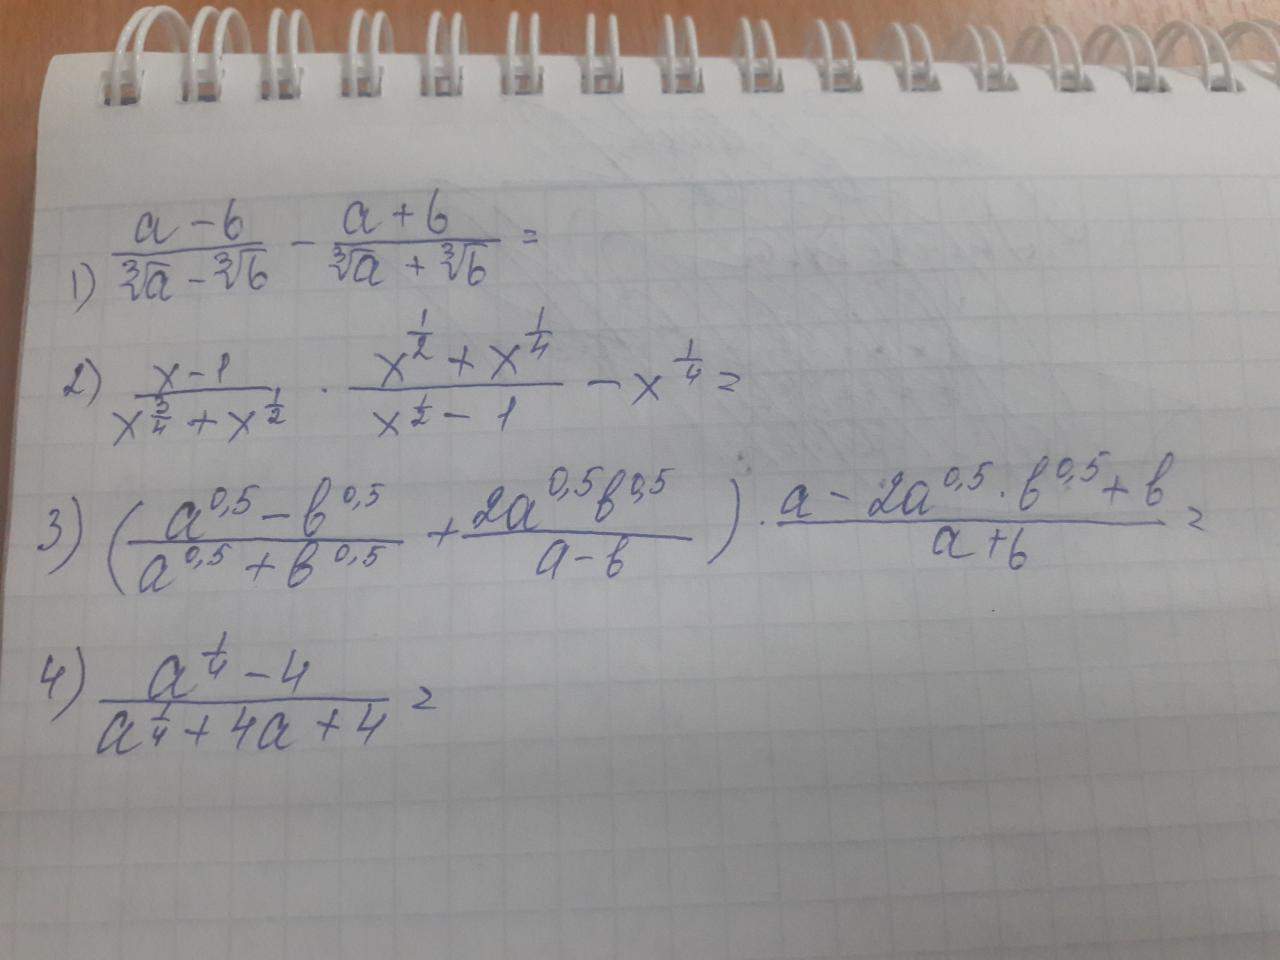 1) \frac{a-b}{\sqrt[3]{a}-\sqrt[3]{b}} - \frac{a+b}{\sqrt[3]{a}+\sqrt[3]{b}} =
2) \frac{x-1}{x^{\frac{3}{4}}+x^{\frac{1}{2}}} \cdot \frac{x^{\frac{1}{2}}+x^{\frac{1}{4}}}{x^{\frac{1}{2}}-1} - x^{\frac{1}{4}} =
3) \left(\frac{a^{0,5}-b^{0,5}}{a^{0,5}+b^{0,5}} + \frac{2a^{0,5}b^{0,5}}{a-b}\right) \cdot \frac{a-2a^{0,5} \cdot b^{0,5}+b}{a+b} =
4) \frac{a^{\frac{1}{4}}-4}{a^{\frac{1}{4}}+4a+4} =